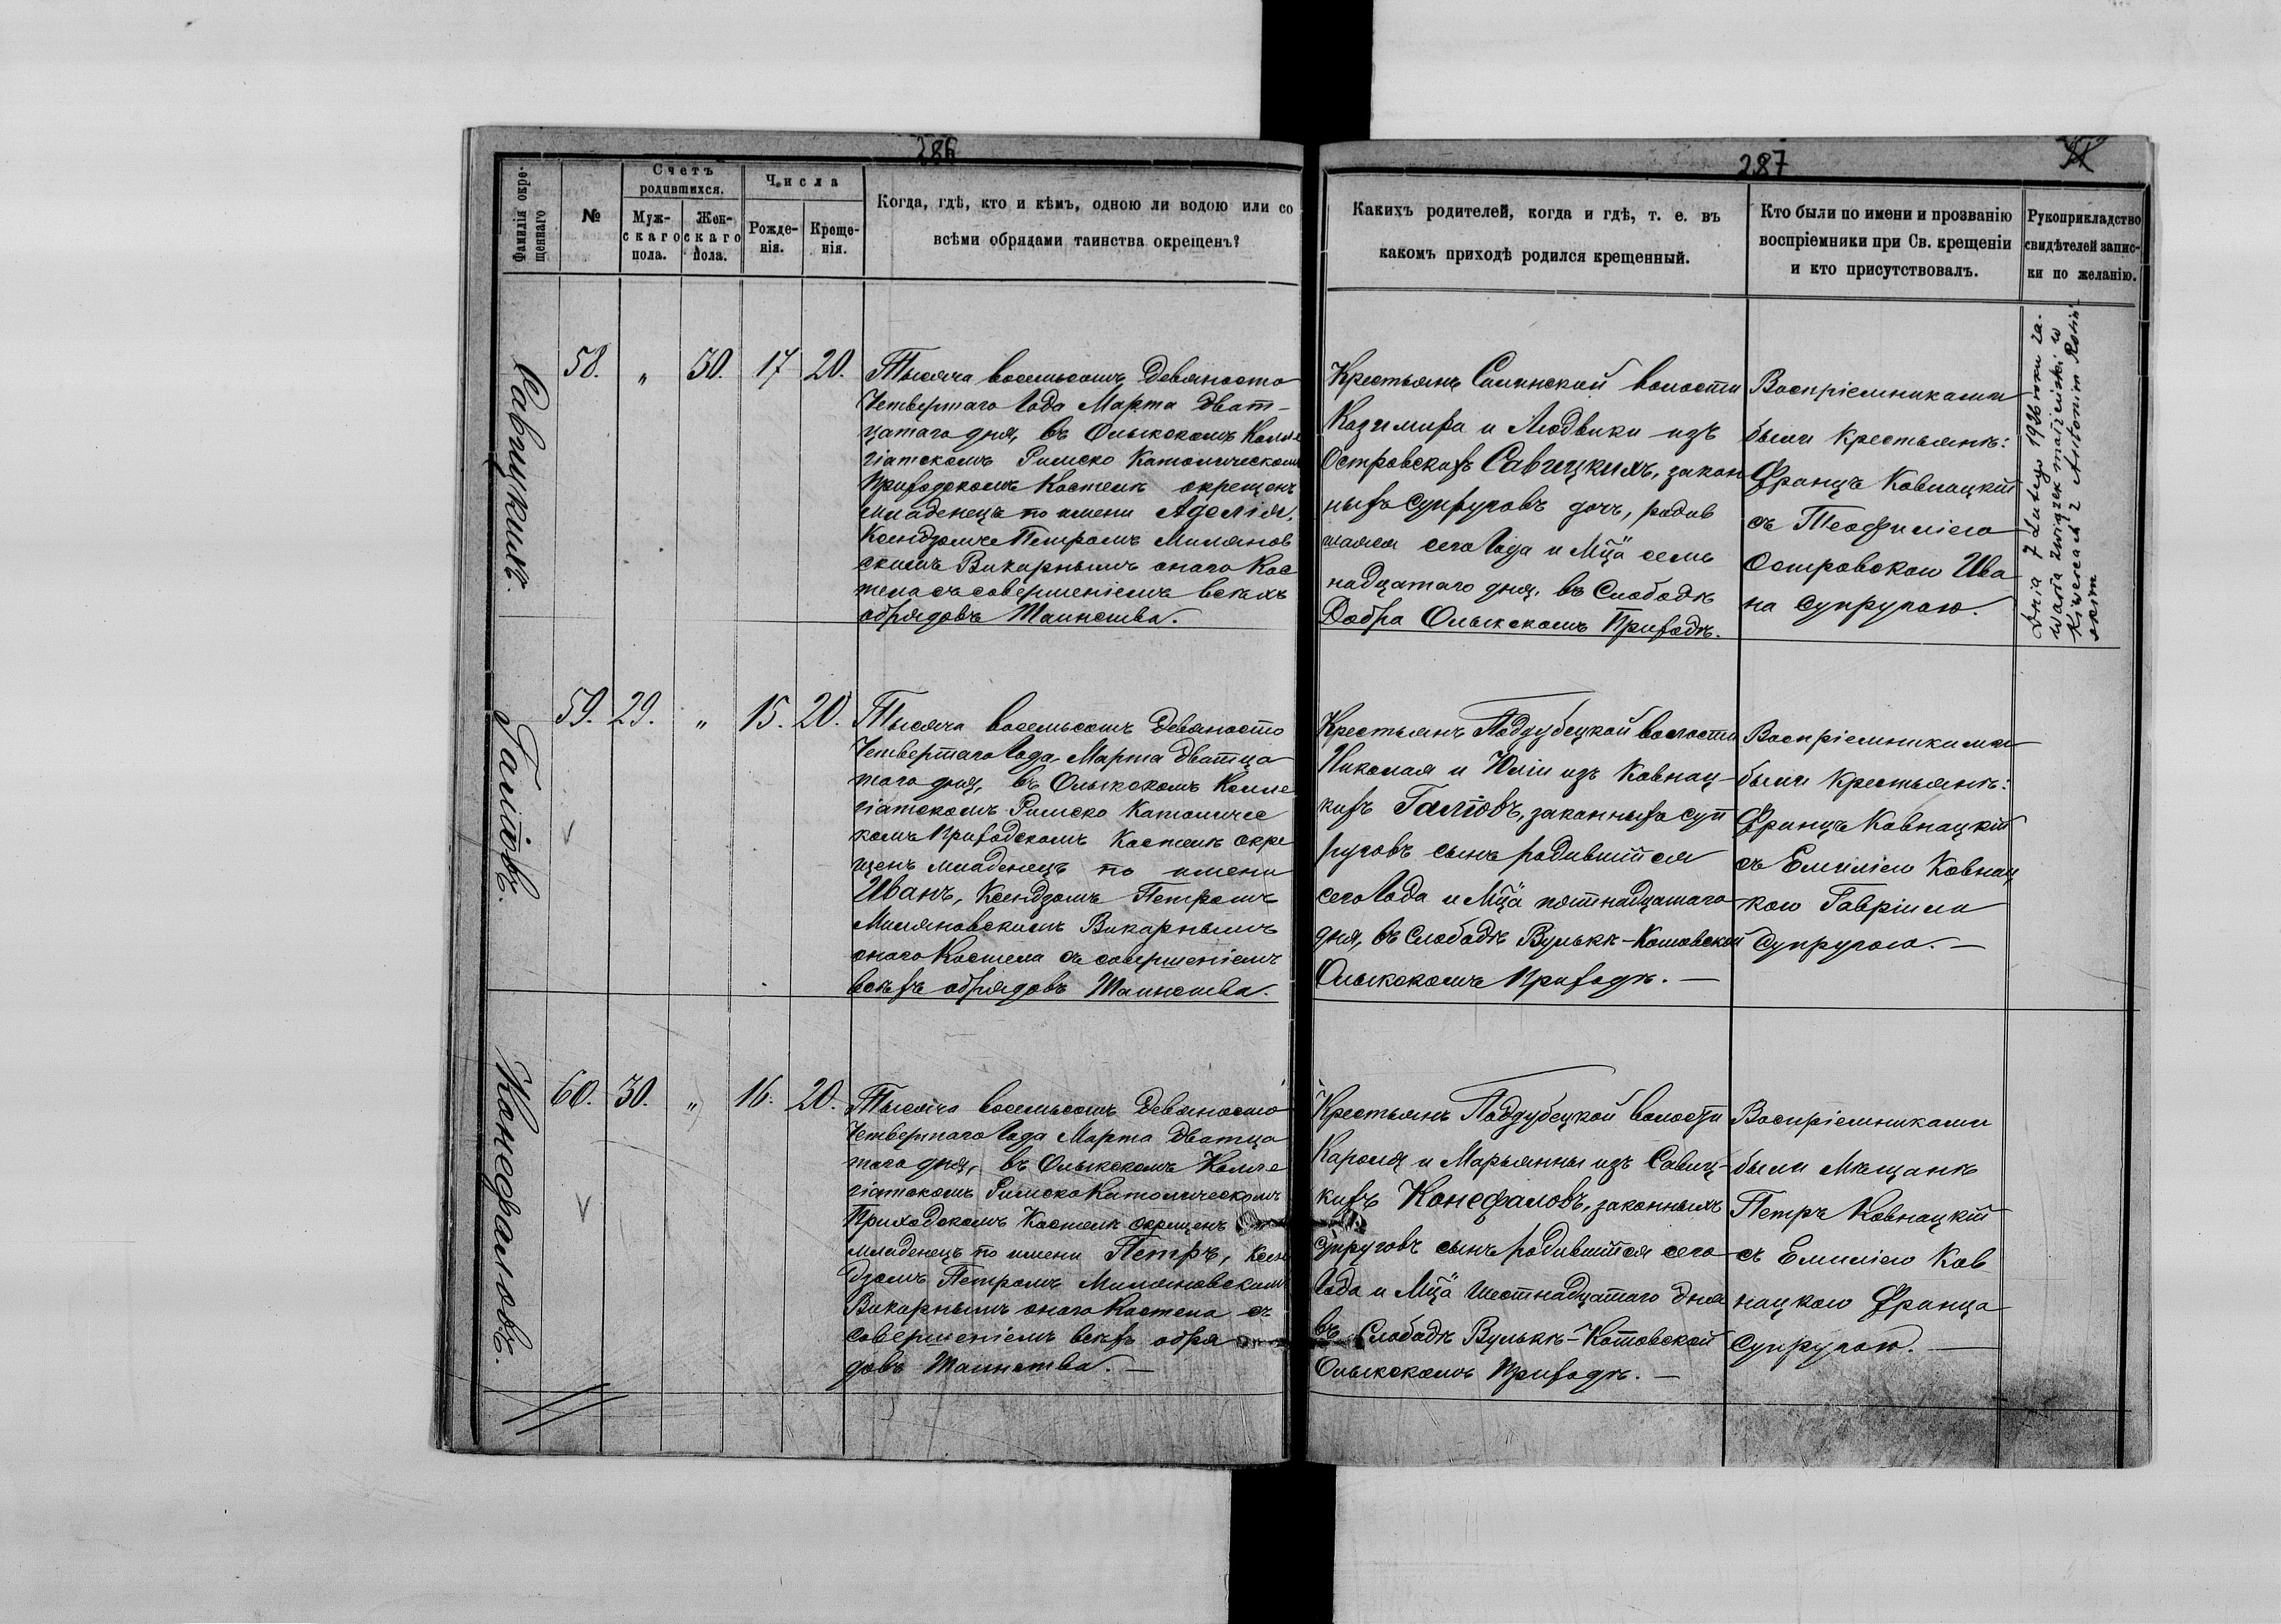 286
Фамилія окре-
щеннаго
№
Счетъ
родившихся.
Муж-
скаго
пола.
Жен-
скаго
пола.
Числа
Рожде-
нія.
Креще-
нія.
Когда, гдѣ, кто и кѣмъ, одною ли водою или со
всѣми обрядами таинства окрещенъ?
Савицкихъ.
58.
"
30.
17
20.
Тысяча восемьсотъ Девяносто
Четвертаго Года Марта дват-
цатаго дня, въ Олыкскомъ Колле
гіатскомъ Римско Католическомъ
Приходскомъ Костелѣ окрещенъ
младенецъ по имени Аделія,
Ксендзомъ Петромъ Милянов
скимъ Викарнымъ онаго Кос
тела съ совершеніемъ всѣхъ
обрядовъ Таинства.
Галіовъ.
59.
29.
"
15.
20.
Тысяча восемьсотъ Девяносто
Четвертаго Года Марта Дватца
таго дня, въ Олыкскомъ Колле
гіатскомъ Римско Католичес
комъ Приходскомъ Костелѣ окре
щенъ младенецъ по имени
Иванъ, Ксендзомъ Петромъ
Миляновскимъ Викарнымъ
онаго Костела съ совершеніемъ
всѣхъ обрядовъ Таинства.
Конефаловъ.
60.
30.
"
16.
20.
Тысяча восемьсотъ Девяносто
Четвертаго Года Марта Дватца
таго дня, въ Олыкскомъ Колле
гіатскомъ Римско Католическомъ
Приходскомъ Костелѣ окрещенъ
младенецъ по имени Петръ, Ксен
дзомъ Петромъ Миляновскимъ
Викарнымъ онаго Костела съ
совершеніемъ всѣхъ обря
довъ Таинства. —
287
Какихъ родителей, когда и гдѣ, т. е. въ
какомъ приходѣ родился крещенный.
Кто были по имени и прозванію
воспріемники при Св. крещеніи
и кто присутствовалъ.
Рукоприкладство
свидѣтелей запис-
ки по желанію.
Крестьянъ Силинской волости
Казимира и Людвики изъ
Островскихъ Савицкихъ, закон
ныхъ супруговъ дочь, родив
шаяся сего Года и Мца семь
надцатаго дня, въ Слободѣ
Добра Олыкскомъ Приходѣ.
Воспріемниками
были крестьянѣ:
Францъ Ковнацкій
съ Теофиліею
Островскою Ива
на супругою.
Dnia 7 Lutego 1926 roku za-
warła związek małżeński w
Kiwercach z Antonim Rosiń-
skim
Крестьянъ Поддубецкой волости
Николая и Юліи изъ Ковнац-
кихъ Галіовъ, законныхъ суп
руговъ сынъ родившійся
сего Года и Мца пятнадцатаго
дня, въ Слободѣ Вулькѣ-Котовской
Олыкскомъ Приходѣ. —
Воспріемниками
были крестьянѣ:
Францъ Ковнацкій
съ Емиліею Ковнац
кою Гавріила
супругою. —
Крестьянъ Поддубецкой волости
Кароля и Марьянны изъ Савиц-
кихъ Конефаловъ, законныхъ
супруговъ сынъ родившійся сего
Года и Мца шестнадцатаго дня
въ Слободѣ Вулькѣ-Котовской
Олыкскомъ Приходѣ. —
Воспріемниками
были Мещанѣ
Петръ Ковнацкій
съ Емиліею Ков
нацкою Франца
супругою. —